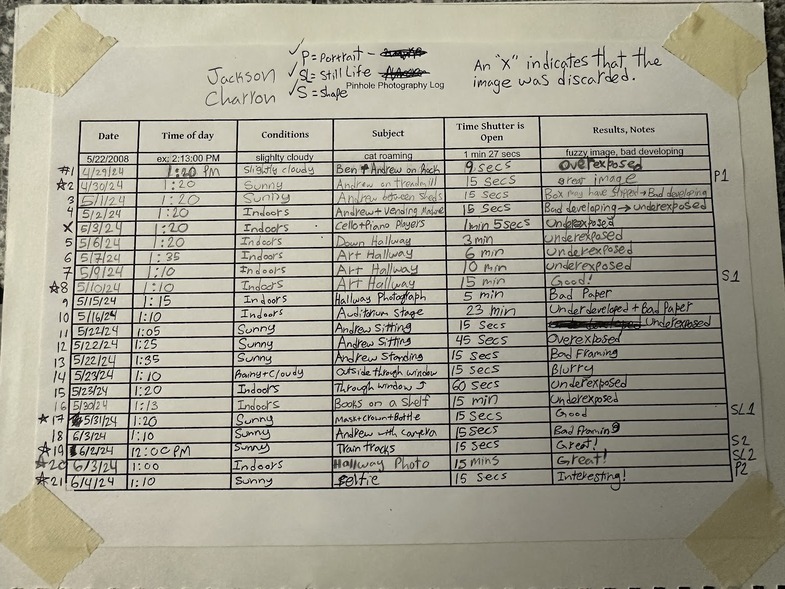 Jackson
Charron
✓ P = Portrait -
✓ SL = Still Life
✓ S = Shape
Pinhole Photography Log
An "X" indicates that the
image was discarded.
Date Time of day Conditions Subject Time Shutter is Open Results, Notes
5/22/2008 ex: 2:13:00 PM slighlty cloudy cat roaming 1 min 27 secs fuzzy image, bad developing
#1 4/29/24 1:20 PM Slightly cloudy Ben + Andrew on Rock 9 secs Overexposed
☆2 4/30/24 1:20 Sunny Andrew on treadmill 15 Secs great image P1
3 5/1/24 1:20 Sunny Andrew between Sheds 15 Secs Box may have slipped → Bad developing
4 5/2/24 1:20 Indoors Andrew + Vending Machine 15 Secs Bad developing → underexposed
X 5/3/24 1:20 Indoors Cello + Piano Players 1 min 5 secs Underexposed
5 5/6/24 1:20 Indoors Down Hallway 3 min Underexposed
6 5/7/24 1:35 Indoors Art Hallway 6 min Underexposed
7 5/9/24 1:10 Indoors Art Hallway 10 min underexposed
☆8 5/10/24 1:10 Indoors Art Hallway 15 min Good! S1
9 5/15/24 1:15 Indoors Hallway Photograph 5 min Bad Paper
10 5/16/24 1:10 Indoors Auditorium Stage 23 min Underdeveloped + Bad Paper
11 5/22/24 1:05 Sunny Andrew Sitting 15 Secs Underexposed
12 5/22/24 1:25 Sunny Andrew Sitting 45 Secs Overexposed
13 5/22/24 1:35 Sunny Andrew Standing 15 Secs Bad Framing
14 5/23/24 1:10 Rainy + Cloudy Outside through window 15 Secs Blurry
15 5/23/24 1:20 Indoors Through window ↑ 60 Secs Underexposed
16 5/30/24 1:13 Indoors Books on a Shelf 15 min Underexposed
☆17 5/31/24 1:20 Sunny Mask + Crown + Bottle 15 Secs Good SL1
18 6/3/24 1:10 Sunny Andrew with camera 15 Secs Bad Framing
☆19 6/2/24 12:00 PM Sunny Train tracks 15 Secs Great! S2
☆20 6/3/24 1:00 Indoors Hallway Photo 15 mins Great! SL2
☆21 6/4/24 1:10 Sunny Selfie 15 Secs Interesting! P2